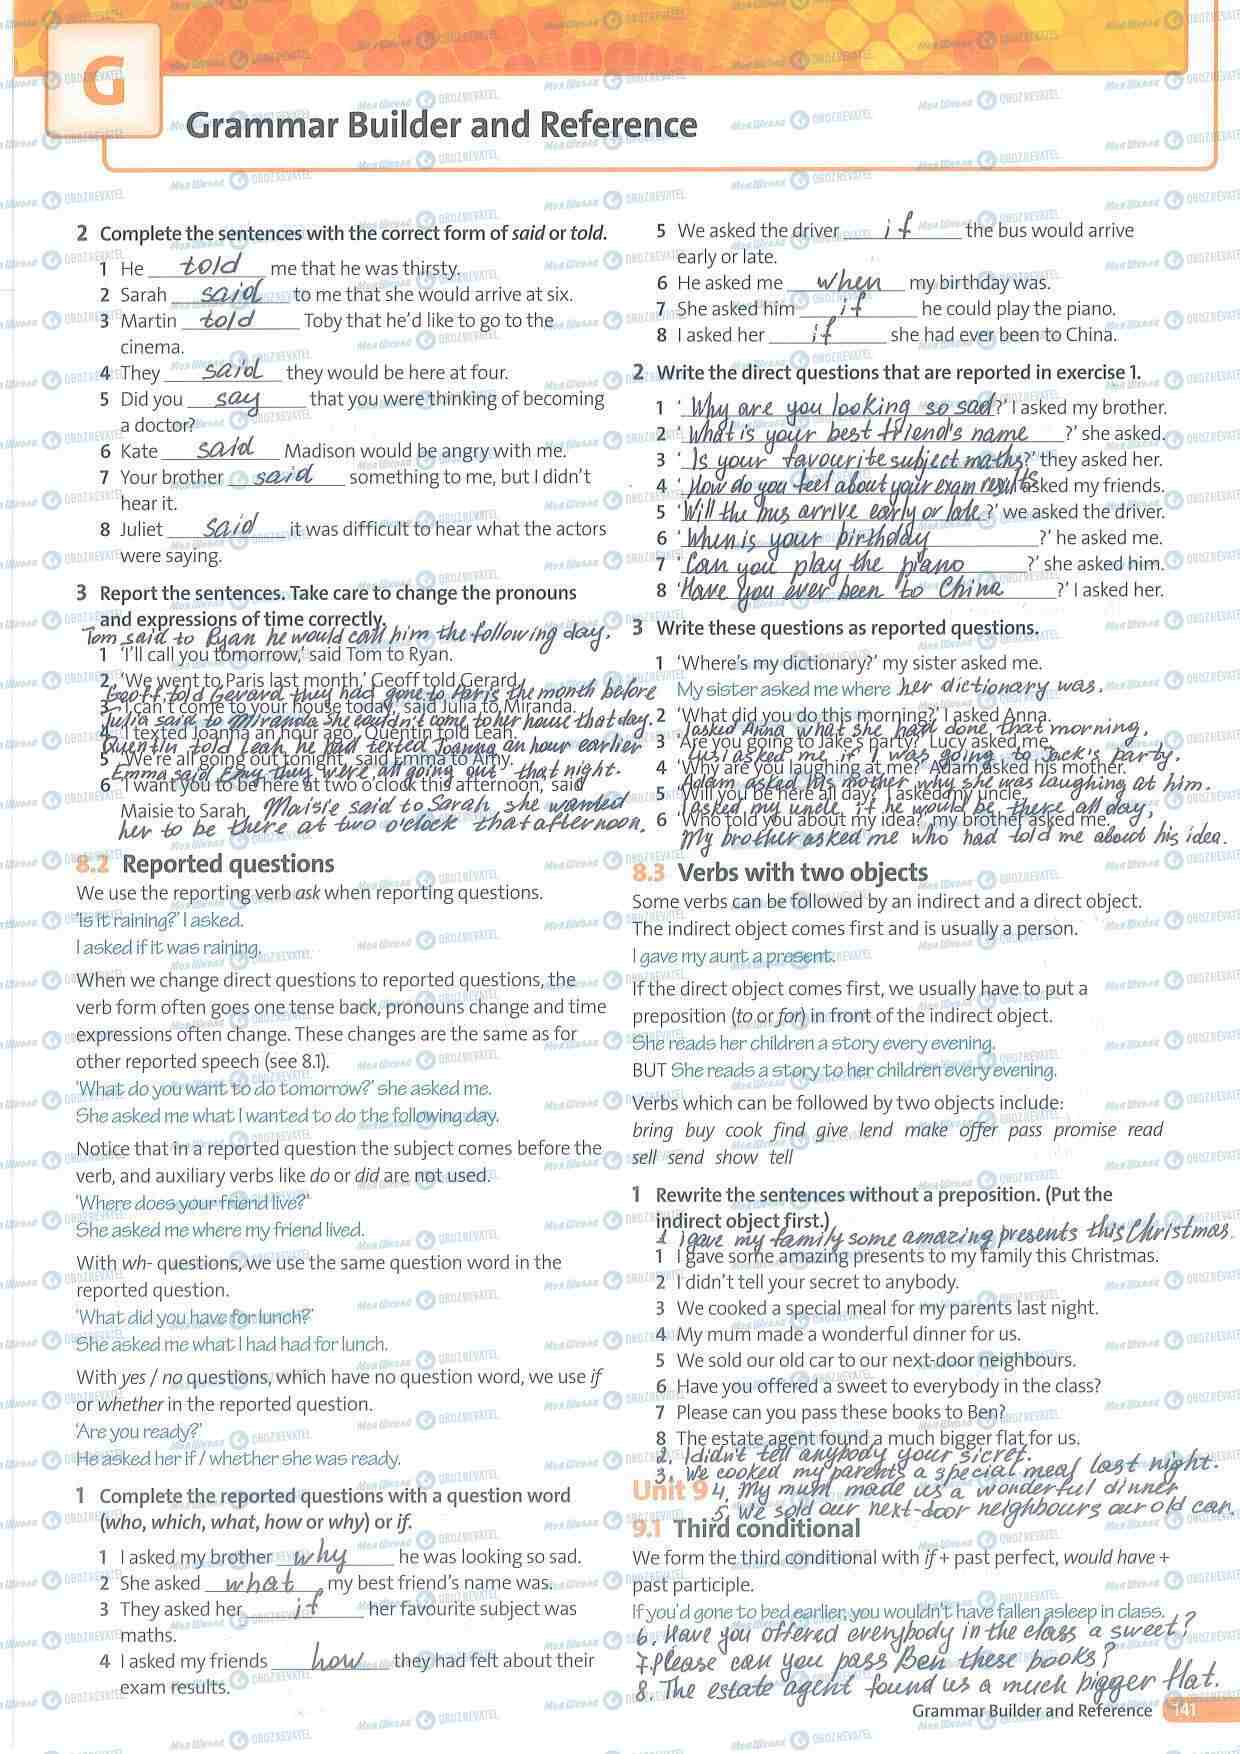 G
Grammar Builder and Reference
2 Complete the sentences with the correct form of said or told.
1 He told me that he was thirsty.
2 Sarah said to me that she would arrive at six.
3 Martin told Toby that he'd like to go to the
cinema.
4 They said they would be here at four.
5 Did you say that you were thinking of becoming
a doctor?
6 Kate said Madison would be angry with me.
7 Your brother said something to me, but I didn't
hear it.
8 Juliet said it was difficult to hear what the actors
were saying.
3 Report the sentences. Take care to change the pronouns
and expressions of time correctly.
Tom said to Ryan he would call him the following day.
1 'I'll call you tomorrow,' said Tom to Ryan.
2 'We went to Paris last month,' Geoff told Gerard.
Geoff told Gerard they had gone to Paris the month before
3 'I can't come to your house today,' said Julia to Miranda.
Julia said to Miranda she couldn't come to her house that day.
4 'I texted Joanna an hour ago,' Quentin told Leah.
Quentin told Leah he had texted Joanna an hour earlier
5 'We're all going out tonight,' said Emma to Amy.
Emma said Emy they were all going out that night.
6 'I want you to be here at two o'clock this afternoon,' said
Maisie to Sarah. Maisie said to Sarah she wanted
her to be there at two o'clock that afternoon.
8.2 Reported questions
We use the reporting verb ask when reporting questions.
'Is it raining?' I asked.
I asked if it was raining.
When we change direct questions to reported questions, the
verb form often goes one tense back, pronouns change and time
expressions often change. These changes are the same as for
other reported speech (see 8.1).
'What do you want to do tomorrow?' she asked me.
She asked me what I wanted to do the following day.
Notice that in a reported question the subject comes before the
verb, and auxiliary verbs like do or did are not used.
'Where does your friend live?'
She asked me where my friend lived.
With wh- questions, we use the same question word in the
reported question.
'What did you have for lunch?'
She asked me what I had had for lunch.
With yes / no questions, which have no question word, we use if
or whether in the reported question.
'Are you ready?'
He asked her if / whether she was ready.
1 Complete the reported questions with a question word
(who, which, what, how or why) or if.
1 I asked my brother why he was looking so sad.
2 She asked what my best friend's name was.
3 They asked her if her favourite subject was
maths.
4 I asked my friends how they had felt about their
exam results.
5 We asked the driver if the bus would arrive
early or late.
6 He asked me when my birthday was.
7 She asked him if he could play the piano.
8 I asked her if she had ever been to China.
2 Write the direct questions that are reported in exercise 1.
1 'Why are you looking so sad?' I asked my brother.
2 'What is your best friend's name?' she asked.
3 'Is your favourite subject maths?' they asked her.
4 'How do you feel about your exam results I asked my friends.
5 'Will the bus arrive early or late?' we asked the driver.
6 'When is your birthday?' he asked me.
7 'Can you play the piano?' she asked him.
8 'Have you ever been to China?' I asked her.
3 Write these questions as reported questions.
1 'Where's my dictionary?' my sister asked me.
My sister asked me where her dictionary was.
2 'What did you do this morning?' I asked Anna.
I asked Anna what she had done that morning.
3 'Are you going to Jake's party?' Lucy asked me.
Lusi asked me if I was going to Jack's party.
4 'Why are you laughing at me?' Adam asked his mother.
Adam asked his mother why she was laughing at him.
5 'Will you be here all day?' I asked my uncle.
I asked my uncle if he would be there all day.
6 'Who told you about my idea?' my brother asked me.
My brother asked me who had told me about his idea.
8.3 Verbs with two objects
Some verbs can be followed by an indirect and a direct object.
The indirect object comes first and is usually a person.
I gave my aunt a present.
If the direct object comes first, we usually have to put a
preposition (to or for) in front of the indirect object.
She reads her children a story every evening.
BUT She reads a story to her children every evening.
Verbs which can be followed by two objects include:
bring buy cook find give lend make offer pass promise read
sell send show tell
1 Rewrite the sentences without a preposition. (Put the
indirect object first.)
1 I gave my family some amazing presents this Christmas.
1 I gave some amazing presents to my family this Christmas.
2 I didn't tell your secret to anybody.
3 We cooked a special meal for my parents last night.
4 My mum made a wonderful dinner for us.
5 We sold our old car to our next-door neighbours.
6 Have you offered a sweet to everybody in the class?
7 Please can you pass these books to Ben?
8 The estate agent found a much bigger flat for us.
2. I didn't tell anybody your sicret.
3. We cooked my parents a special meal last night.
Unit 9 4. My mum made us a wonderful dinner
5. We sold our next-door neighbours our old car.
9.1 Third conditional
We form the third conditional with if + past perfect, would have +
past participle.
If you'd gone to bed earlier, you wouldn't have fallen asleep in class.
6. Have you offered everybody in the class a sweet?
7. Please can you pass Ben these books?
8. The estate agent found us a much bigger flat.
Grammar Builder and Reference 141